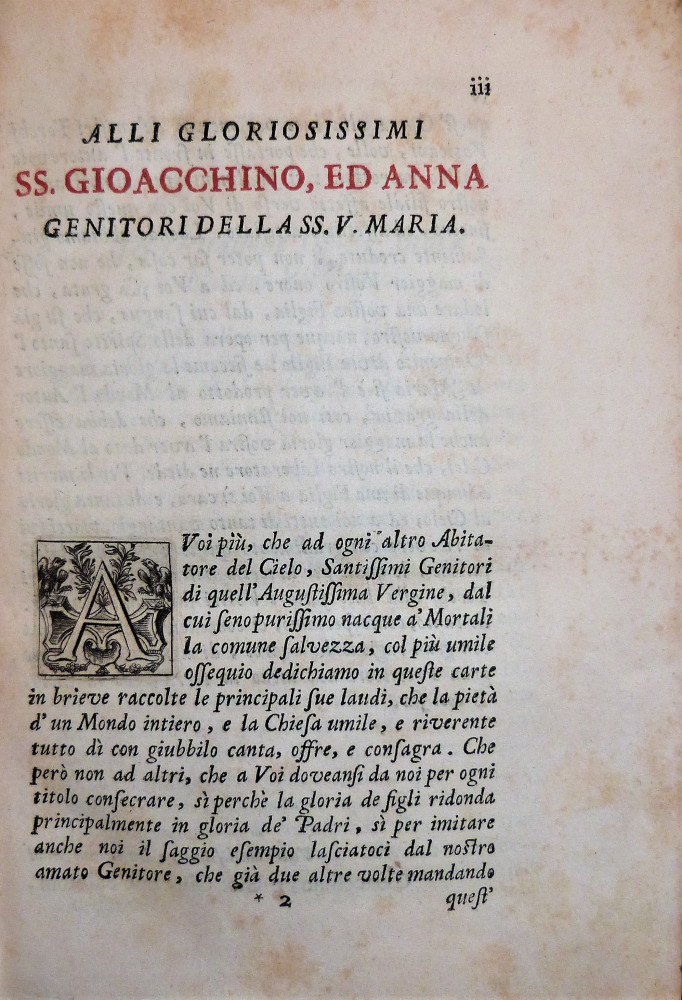 iii
ALLI GLORIOSISSIMI
SS. GIOACCHINO, ED ANNA
GENITORI DELLA SS. V. MARIA.
A Voi più, che ad ogni altro Abita-
tore del Cielo, Santiſſimi Genitori
di quell'Auguſtiſſima Vergine, dal
cui ſeno puriſſimo nacque a' Mortali
la comune ſalvezza, col più umile
oſſequio dedichiamo in queſte carte
in brieve raccolte le principali ſue laudi, che la pietà
d'un Mondo intiero, e la Chieſa umile, e riverente
tutto dì con giubbilo canta, offre, e conſagra. Che
però non ad altri, che a Voi doveanſi da noi per ogni
titolo conſecrare, sì perchè la gloria de figli ridonda
principalmente in gloria de' Padri, sì per imitare
anche noi il ſaggio eſempio laſciatoci dal noſtro
amato Genitore, che già due altre volte mandando
* 2 queſt'